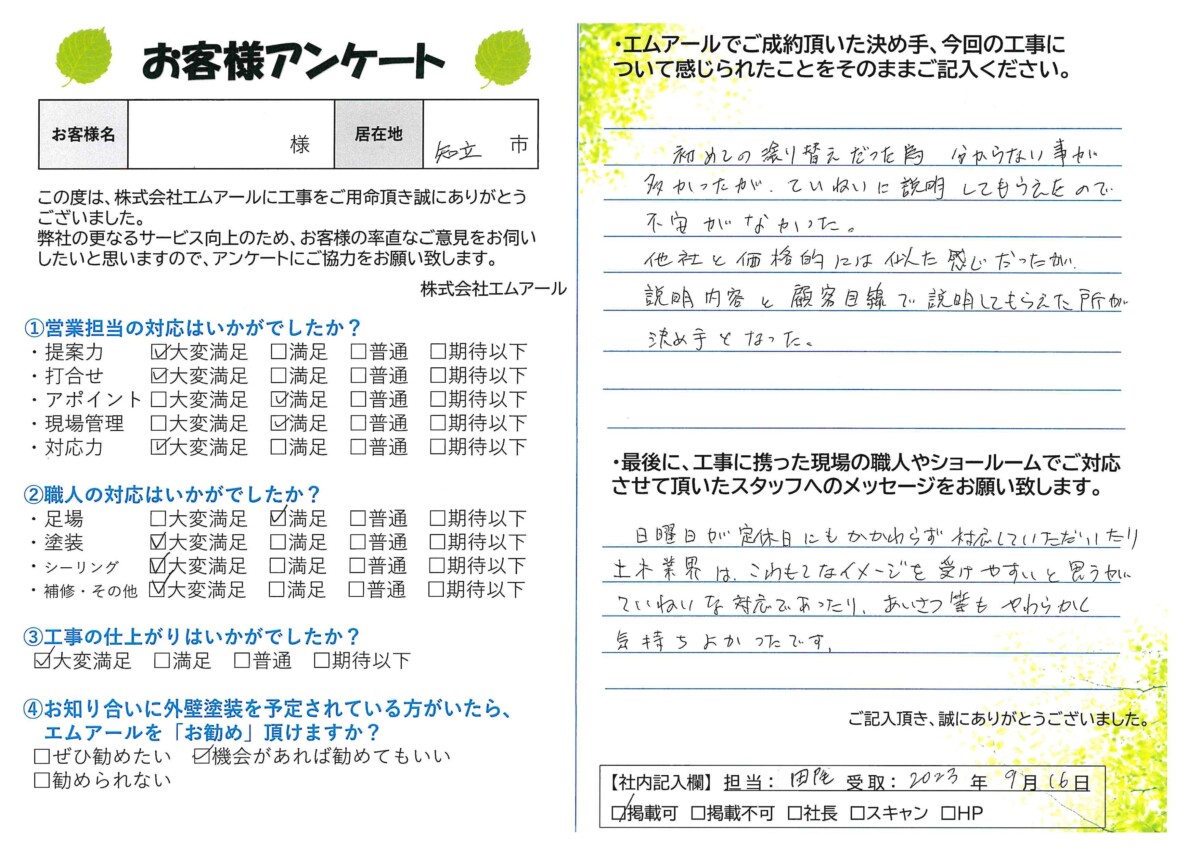 お客様アンケート
お客様名 様 居在地 知立 市
この度は、株式会社エムアールに工事をご用命頂き誠にありがとう
ございました。
弊社の更なるサービス向上のため、お客様の率直なご意見をお伺い
したいと思いますので、アンケートにご協力をお願い致します。
株式会社エムアール
①営業担当の対応はいかがでしたか？
・提案力 ☑大変満足 □満足 □普通 □期待以下
・打合せ ☑大変満足 □満足 □普通 □期待以下
・アポイント □大変満足 ☑満足 □普通 □期待以下
・現場管理 □大変満足 ☑満足 □普通 □期待以下
・対応力 ☑大変満足 □満足 □普通 □期待以下
②職人の対応はいかがでしたか？
・足場 □大変満足 ☑満足 □普通 □期待以下
・塗装 ☑大変満足 □満足 □普通 □期待以下
・シーリング ☑大変満足 □満足 □普通 □期待以下
・補修・その他 ☑大変満足 □満足 □普通 □期待以下
③工事の仕上がりはいかがでしたか？
☑大変満足 □満足 □普通 □期待以下
④お知り合いに外壁塗装を予定されている方がいたら、
エムアールを「お勧め」頂けますか？
□ぜひ勧めたい ☑機会があれば勧めてもいい
□勧められない
・エムアールでご成約頂いた決め手、今回の工事に
ついて感じられたことをそのままご記入ください。
初めての塗り替えだった為 分からない事が
多かったが、ていねいに説明してもらえたので
不安がなかった。
他社と価格的には似た感じだったが、
説明内容と顧客目線で説明してもらえた所が
決め手となった。
・最後に、工事に携った現場の職人やショールームでご対応
させて頂いたスタッフへのメッセージをお願い致します。
日曜日が定休日にもかかわらず対応していただいたり
土木業界は、こわもてなイメージを受けやすいと思うが
ていねいな対応であったり、あいさつ等もやわらかく
気持ちよかったです。
ご記入頂き、誠にありがとうございました。
【社内記入欄】 担当： 受取：2023年9月16日
☑掲載可 □掲載不可 □社長 □スキャン □HP